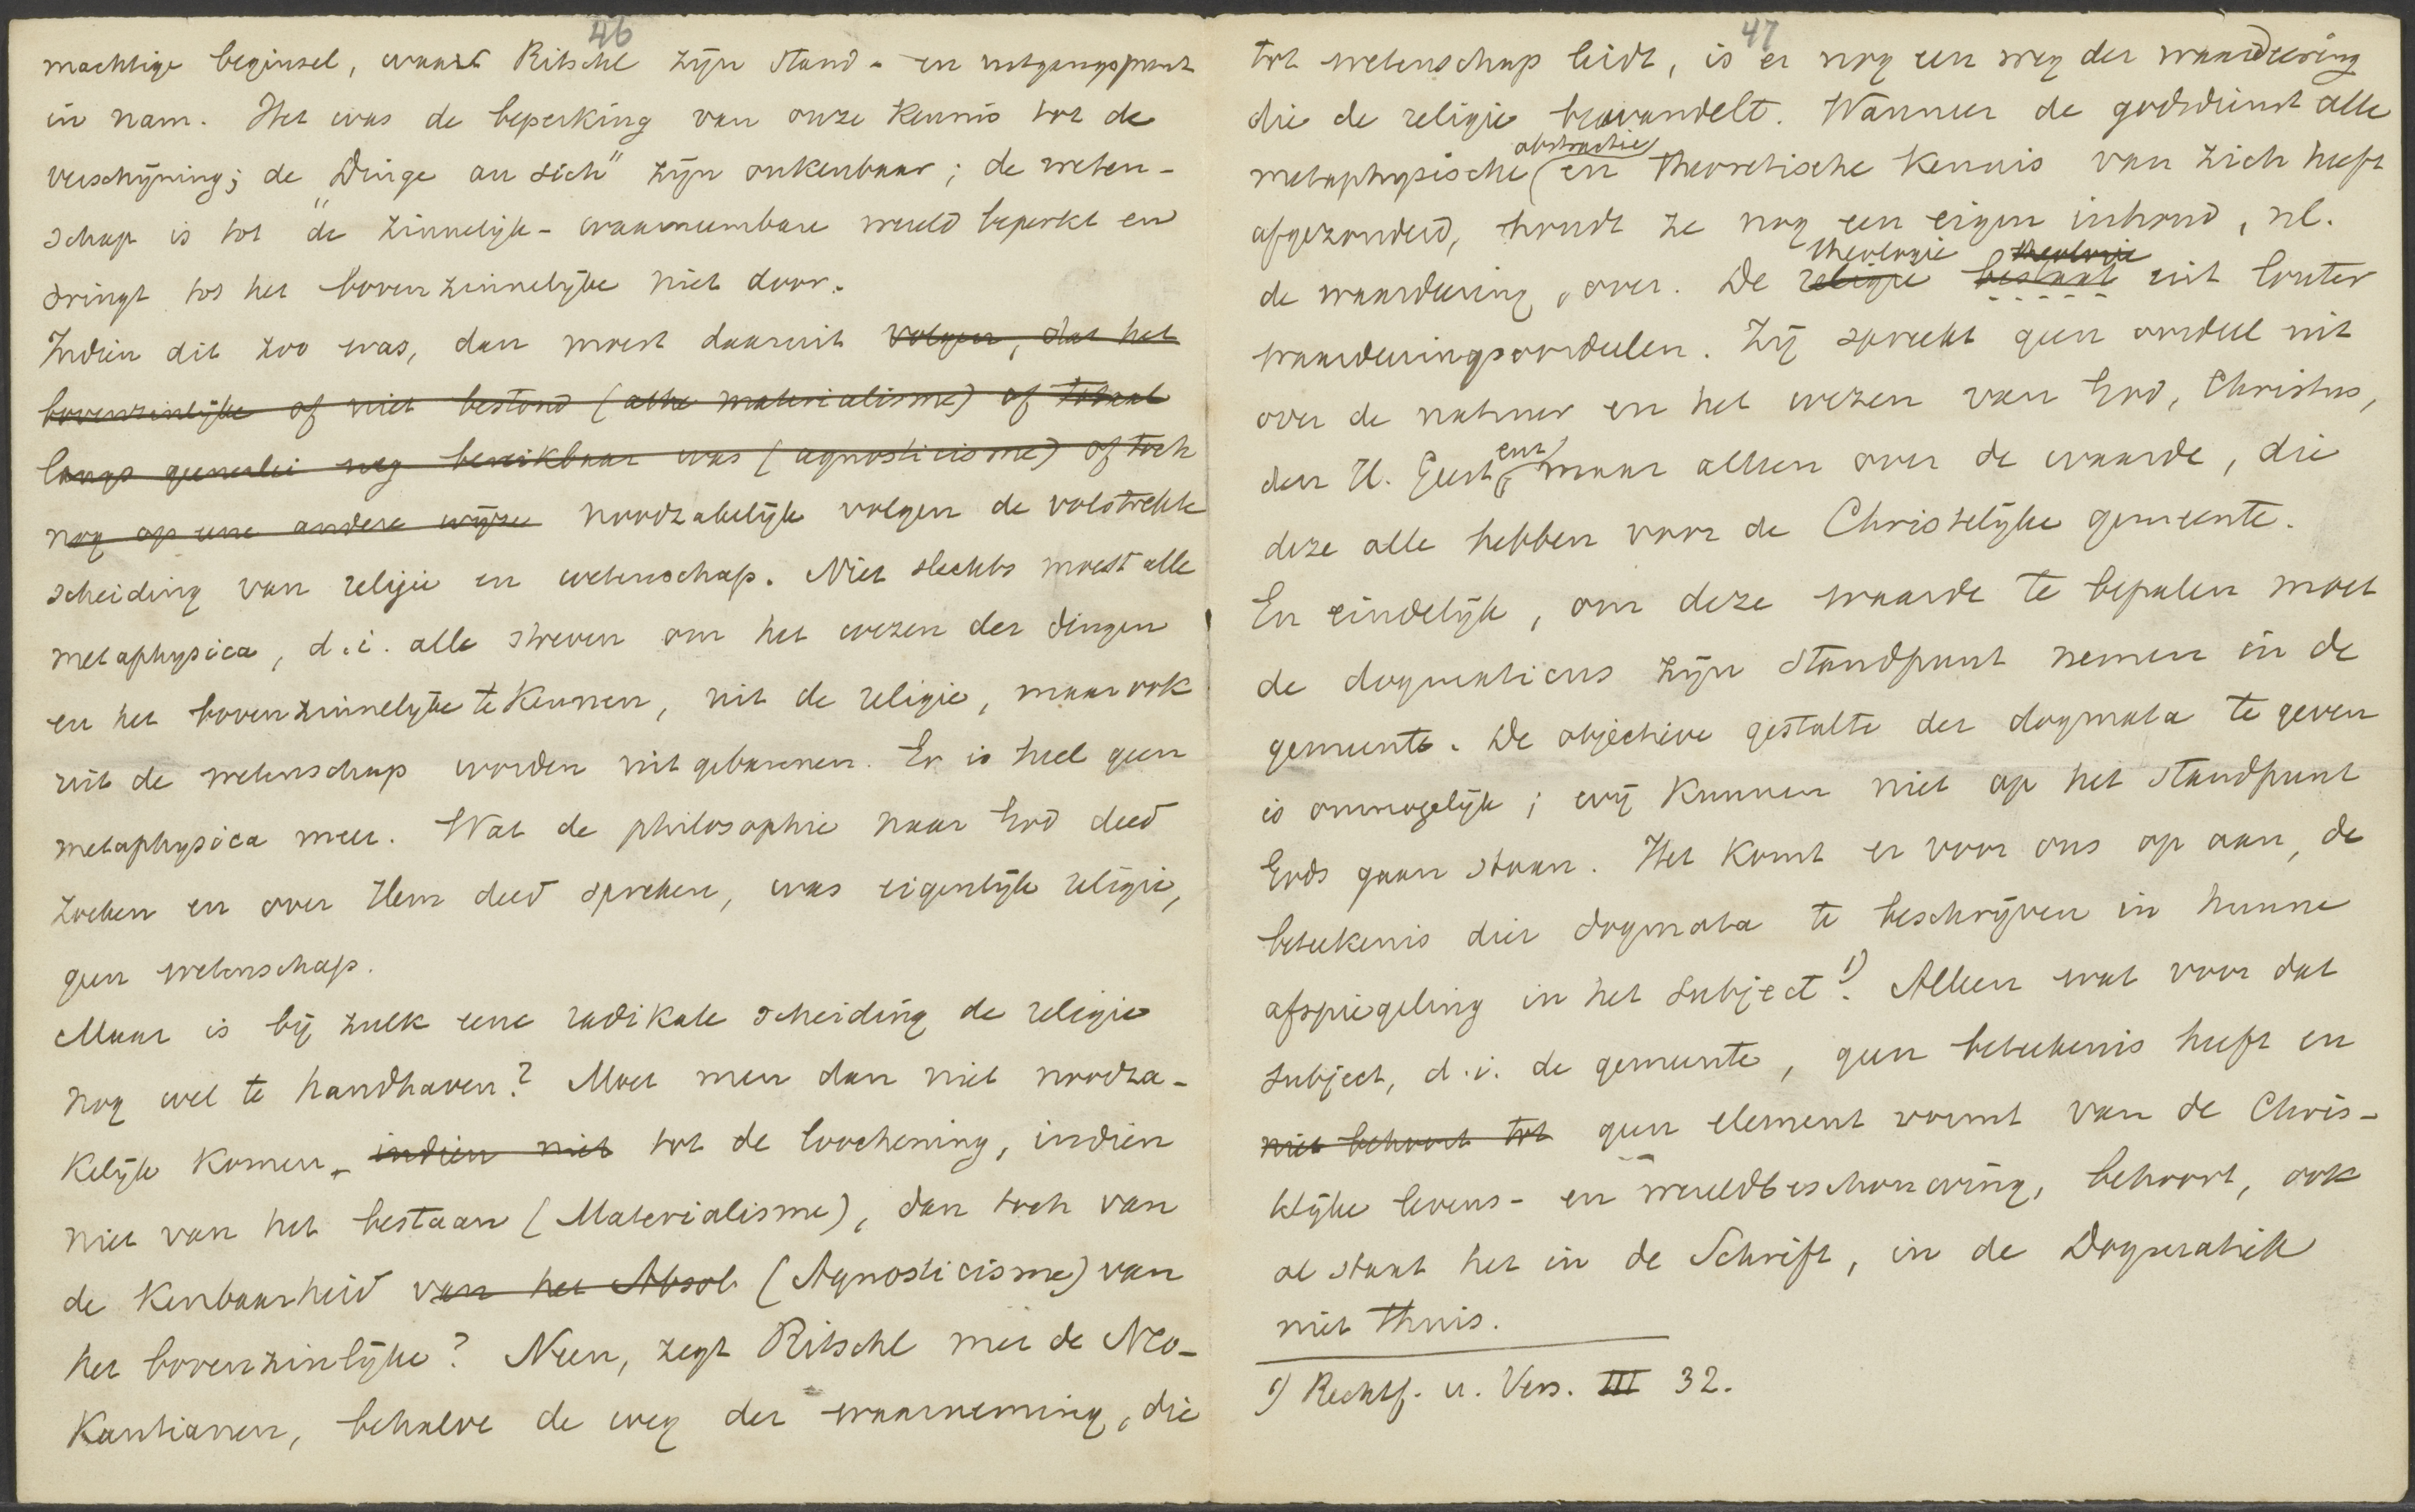 46
machtige beginsel, waarin Ritschl zijn stand- en uitgangspunt
in nam. Het was de beperking van onze kennis tot de
verschijning; de "Dinge an sich" zijn onkenbaar; de weten-
schap is tot de zinnelijk-waarneembare wereld beperkt en
dringt tot het bovenzinnelijke niet door.
Indien dit zoo was, dan moest daaruit volgen, dat het
bovenzinlijke of niet bestond (alle materialisme) of totaal
langs geenerlei weg bereikbaar was (agnosticisme) of toch
nog op eene andere wijze noodzakelijk volgen de volstrekte
scheiding van religie en wetenschap. Niet slechts moest alle
metaphysica, d.i. alle streven om het wezen der dingen
en het bovenzinnelijke te kennen, uit de religie, maar ook
uit de wetenschap worden uitgebannen. Er is heel geen
metaphysica meer. Wat de philosophie naar God deed
zoeken en over Hem deed spreken, was eigenlijk religie,
geen wetenschap.
Maar is bij zulk eene radikale scheiding de religie
nog wel te handhaven? Moet men dan niet noodza-
kelijk komen indien niet tot de loochening, indien
niet van het bestaan (Materialisme), dan toch van
de kenbaarheid van het Absol. (Agnosticisme) van
het bovenzinlijke? Neen, zegt Ritschl met de Neo-
Kantianen, behalve de weg der waarneming, die
47
tot wetenschap leidt, is er nog een weg der waardeering
die de religie bewandelt. Wanneer de godsdienst alle
abstractie
metaphysische en theoretische kennis van zich heeft
afgezonderd, houdt ze nog een eigen inhoud, nl.
theologie theologie
de waardeering, over. De religie bestaat uit louter
waardeeringsoordeelen. Zij spreekt geen oordeel uit
over de natuur en het wezen van God, Christus,
enz.
den H. Geest, maar alleen over de waarde, die
deze alle hebben voor de Christelijke gemeente.
En eindelijk, om deze waarde te bepalen moet
de dogmaticus zijn standpunt nemen in de
gemeente. De objectieve gestalte der dogmata te geven
is onmogelijk; wij kunnen niet op het standpunt
Gods gaan staan. Het komt er voor ons op aan, de
beteekenis dier dogmata te beschrijven in hunne
afspiegeling in het subject 1). Alleen wat voor dat
subject, d.i. de gemeente, geen beteekenis heeft en
niet behoort tot geen element vormt van de Chris-
tlijke levens- en wereldbeschouwing, behoort, ook
al staat het in de Schrift, in de Dogmatiek
niet thuis.
1) Rechtf. u. Vers. III 32.